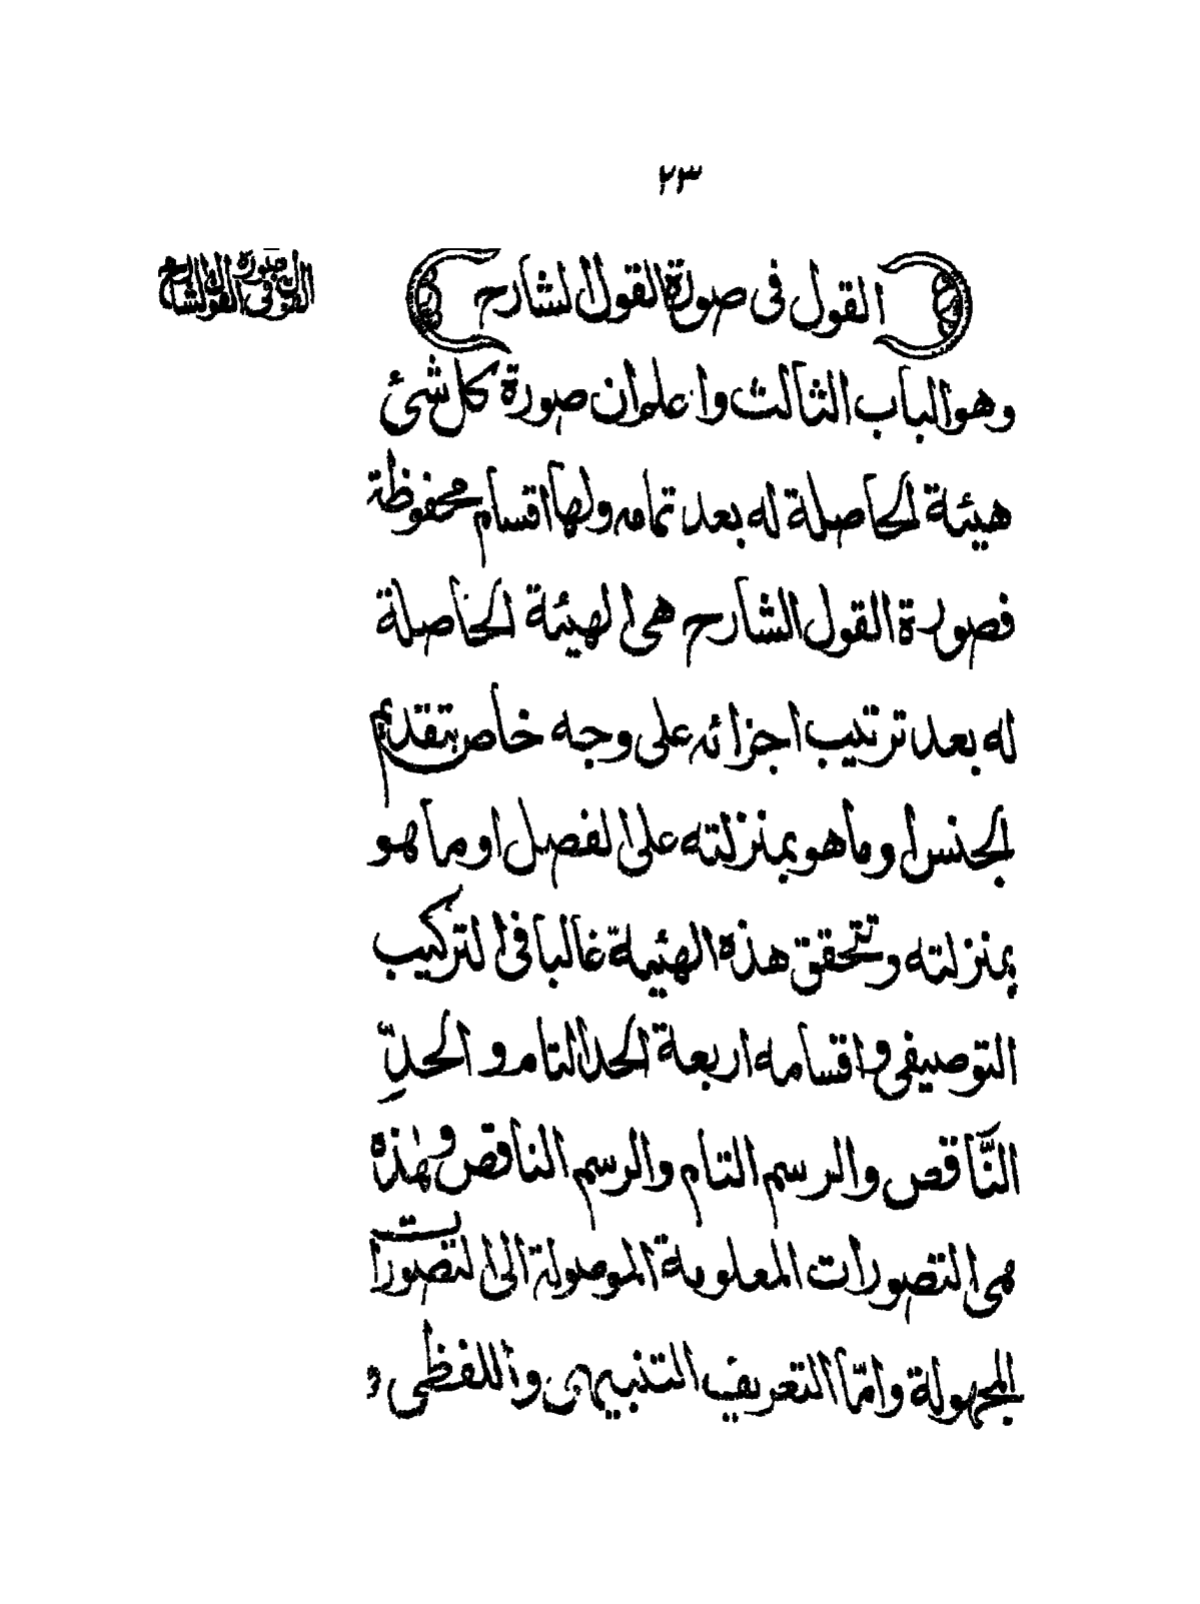 ٢٣
القول في صورة القول الشارح
القول في صورة القول الشارح
وهو الباب الثالث واعلم ان صورة كل شئ
هيئة الحاصلة له بعد تمامه ولها اقسام محفوظة
فصورة القول الشارح هي الهيئة الحاصلة
له بعد ترتيب اجزائه على وجه خاص بتقديم
الجنس او ما هو بمنزلته على الفصل او ما هو
بمنزلته وتتحقق هذه الهيئة غالبا في التركيب
التوصيفي واقسامه اربعة الحد التام و الحدِّ
النَّاقص والرسم التام والرسم الناقص وهٰذه
هي التصورات المعلومة الموصولة الى التصورات
المجهولة وامّا التعريف التنبيهي واللفظي و